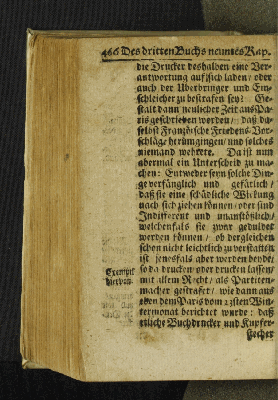 466 Des dritten Buchs neuntes Kap.
die Drucker deshalben eine Ver-
antwortung auf sich laden / oder
auch der Uberbringer und Ein-
schleicher zu bestrafen sey? Ge-
stalt dann neulicher Zeit aus Pa-
ris geschrieben worden / daß da-
selbst Französische Friedens-Vor-
schläge herümgingen / und solches
niemand wehrete. Da ist nun
abermal ein Unterscheid zu ma-
chen: Entweder seyn solche Din-
ge verfänglich und gefärlich /
daß sie eine schädliche Wirkung
nach sich ziehen können / oder sind
Indifferent und unanstößlich /
welchenfals sie zwar geduldet
werden können / ob dergleichen
schon nicht leichtlich zu verstatten
ist jenesfals aber werden beyde /
so da drucken oder drucken lassen /
Exempel
hiervon.
mit allem Recht / als Partiten-
macher gestrafet / wie dann aus
eben dem Paris vom 21sten Win-
termonat berichtet wurde: daß
etliche Buchdrucker und Kupfer-
stecher